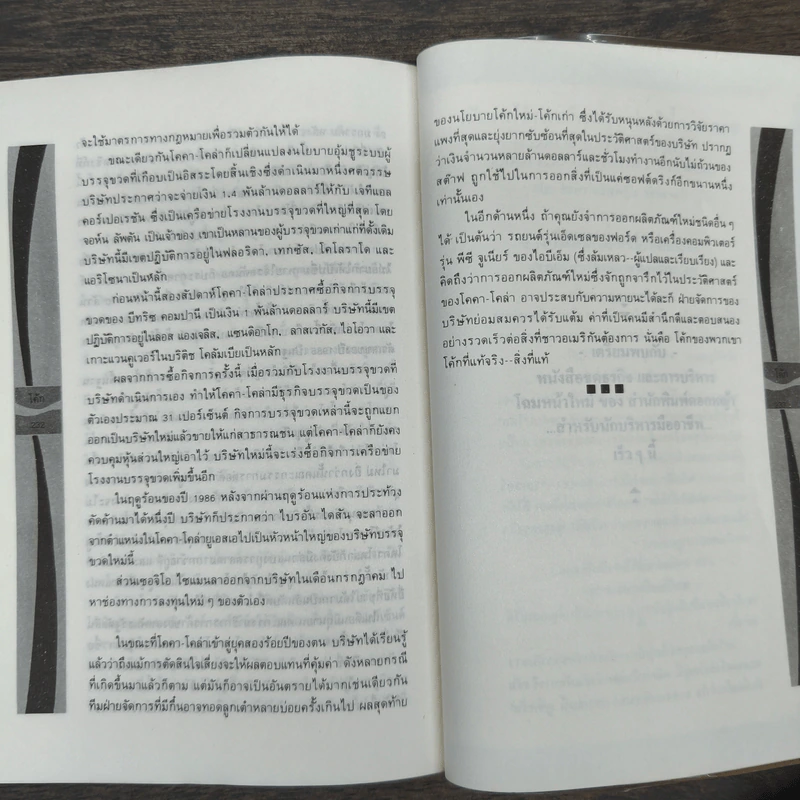 จะใช้มาตรการทางกฎหมายเพื่อรวมตัวกันให้ได้
ขณะเดียวกันโคคา-โคล่าก็เปลี่ยนแปลงนโยบายอุ้มชูระบบผู้
บรรจุขวดที่เกือบเป็นอิสระโดยสิ้นเชิงซึ่งดำเนินมาหนึ่งศตวรรษ
บริษัทประกาศว่าจะจ่ายเงิน 1.4 พันล้านดอลลาร์ให้กับ เจทีแอล
คอร์เปอเรชัน ซึ่งเป็นเครือข่ายโรงงานบรรจุขวดที่ใหญ่ที่สุด โดย
จอห์น ลัพตัน เป็นเจ้าของ เขาเป็นหลานของผู้บรรจุขวดเก่าแก่ที่ดั้งเดิม
บริษัทนี้มีเขตปฏิบัติการอยู่ในฟลอริดา, เทกซัส, โคโลราโด และ
แอริโซนาเป็นหลัก
ก่อนหน้านี้สองสัปดาห์โคคา-โคล่าประกาศซื้อกิจการบรรจุ
ขวดของ บีทริซ คอมปานี เป็นเงิน 1 พันล้านดอลลาร์ บริษัทนี้มีเขต
ปฏิบัติการอยู่ในลอส แองเจลิส, แซนดิอาโก, ลาสเวกัส, ไอโอวา และ
เกาะแวนคูเวอร์ในบริติช โคลัมเบียเป็นหลัก
ผลจากการซื้อกิจการครั้งนี้ เมื่อรวมกับโรงงานบรรจุขวดที่
บริษัทดำเนินการเอง ทำให้โคคา-โคล่ามีธุรกิจบรรจุขวดเป็นของ
ตัวเองประมาณ 31 เปอร์เซ็นต์ กิจการบรรจุขวดเหล่านี้จะถูกแยก
ออกเป็นบริษัทใหม่แล้วขายให้แก่สาธารณชน แต่โคคา-โคล่าก็ยังคง
ควบคุมหุ้นส่วนใหญ่เอาไว้ บริษัทใหม่นี้จะเร่งซื้อกิจการเครือข่าย
โรงงานบรรจุขวดเพิ่มขึ้นอีก
ในฤดูร้อนของปี 1986 หลังจากผ่านฤดูร้อนแห่งการประท้วง
คัดค้านมาได้หนึ่งปี บริษัทก็ประกาศว่า ไบรอัน ไดสัน จะลาออก
จากตำแหน่งในโคคา-โคล่ายูเอสเอไปเป็นหัวหน้าใหญ่ของบริษัทบรรจุ
ขวดใหม่นี้
ส่วนเซอจิโอ ไซแมนลาออกจากบริษัทในเดือนกรกฎาคม ไป
หาช่องทางการลงทุนใหม่ ๆ ของตัวเอง
ในขณะที่โคคา-โคล่าเข้าสู่ยุคสองร้อยปีของตน บริษัทได้เรียนรู้
แล้วว่าถึงแม้การตัดสินใจเสี่ยงจะให้ผลตอบแทนที่คุ้มค่า ดังหลายกรณี
ที่เกิดขึ้นมาแล้วก็ตาม แต่มันก็อาจเป็นอันตรายได้มากเช่นเดียวกัน
ทีมฝ่ายจัดการที่มีกึ๋นอาจทอดลูกเต๋าหลายบ่อยครั้งเกินไป ผลสุดท้าย
โค้ก
222
ของนโยบายโค้กใหม่-โค้กเก่า ซึ่งได้รับหนุนหลังด้วยการวิจัยราคา
แพงที่สุดและยุ่งยากซับซ้อนที่สุดในประวัติศาสตร์ของบริษัท ปรากฏ
ว่าเงินจำนวนหลายล้านดอลลาร์และชั่วโมงทำงานอีกนับไม่ถ้วนของ
สต๊าฟ ถูกใช้ไปในการออกสิ่งที่เป็นแค่ซอฟต์ดริงก์อีกขนานหนึ่ง
เท่านั้นเอง
ในอีกด้านหนึ่ง ถ้าคุณยังจำการออกผลิตภัณฑ์ใหม่ชนิดอื่น ๆ
ได้ เป็นต้นว่า รถยนต์รุ่นเอ็ดเซลของฟอร์ด หรือเครื่องคอมพิวเตอร์
รุ่น พีซี จูเนียร์ ของไอบีเอ็ม (ซึ่งล้มเหลว-ผู้แปลและเรียบเรียง) และ
คิดถึงว่าการออกผลิตภัณฑ์ใหม่ซึ่งจักถูกจารึกไว้ในประวัติศาสตร์
ของโคคา-โคล่า อาจประสบกับความหายนะได้ละก็ ฝ่ายจัดการของ
บริษัทย่อมสมควรได้รับแต้ม ค่าที่เป็นคนมีสำนึกดีและตอบสนอง
อย่างรวดเร็วต่อสิ่งที่ชาวอเมริกันต้องการ นั่นคือ โค้กของพวกเขา
โค้กที่แท้จริง--สิ่งที่แท้